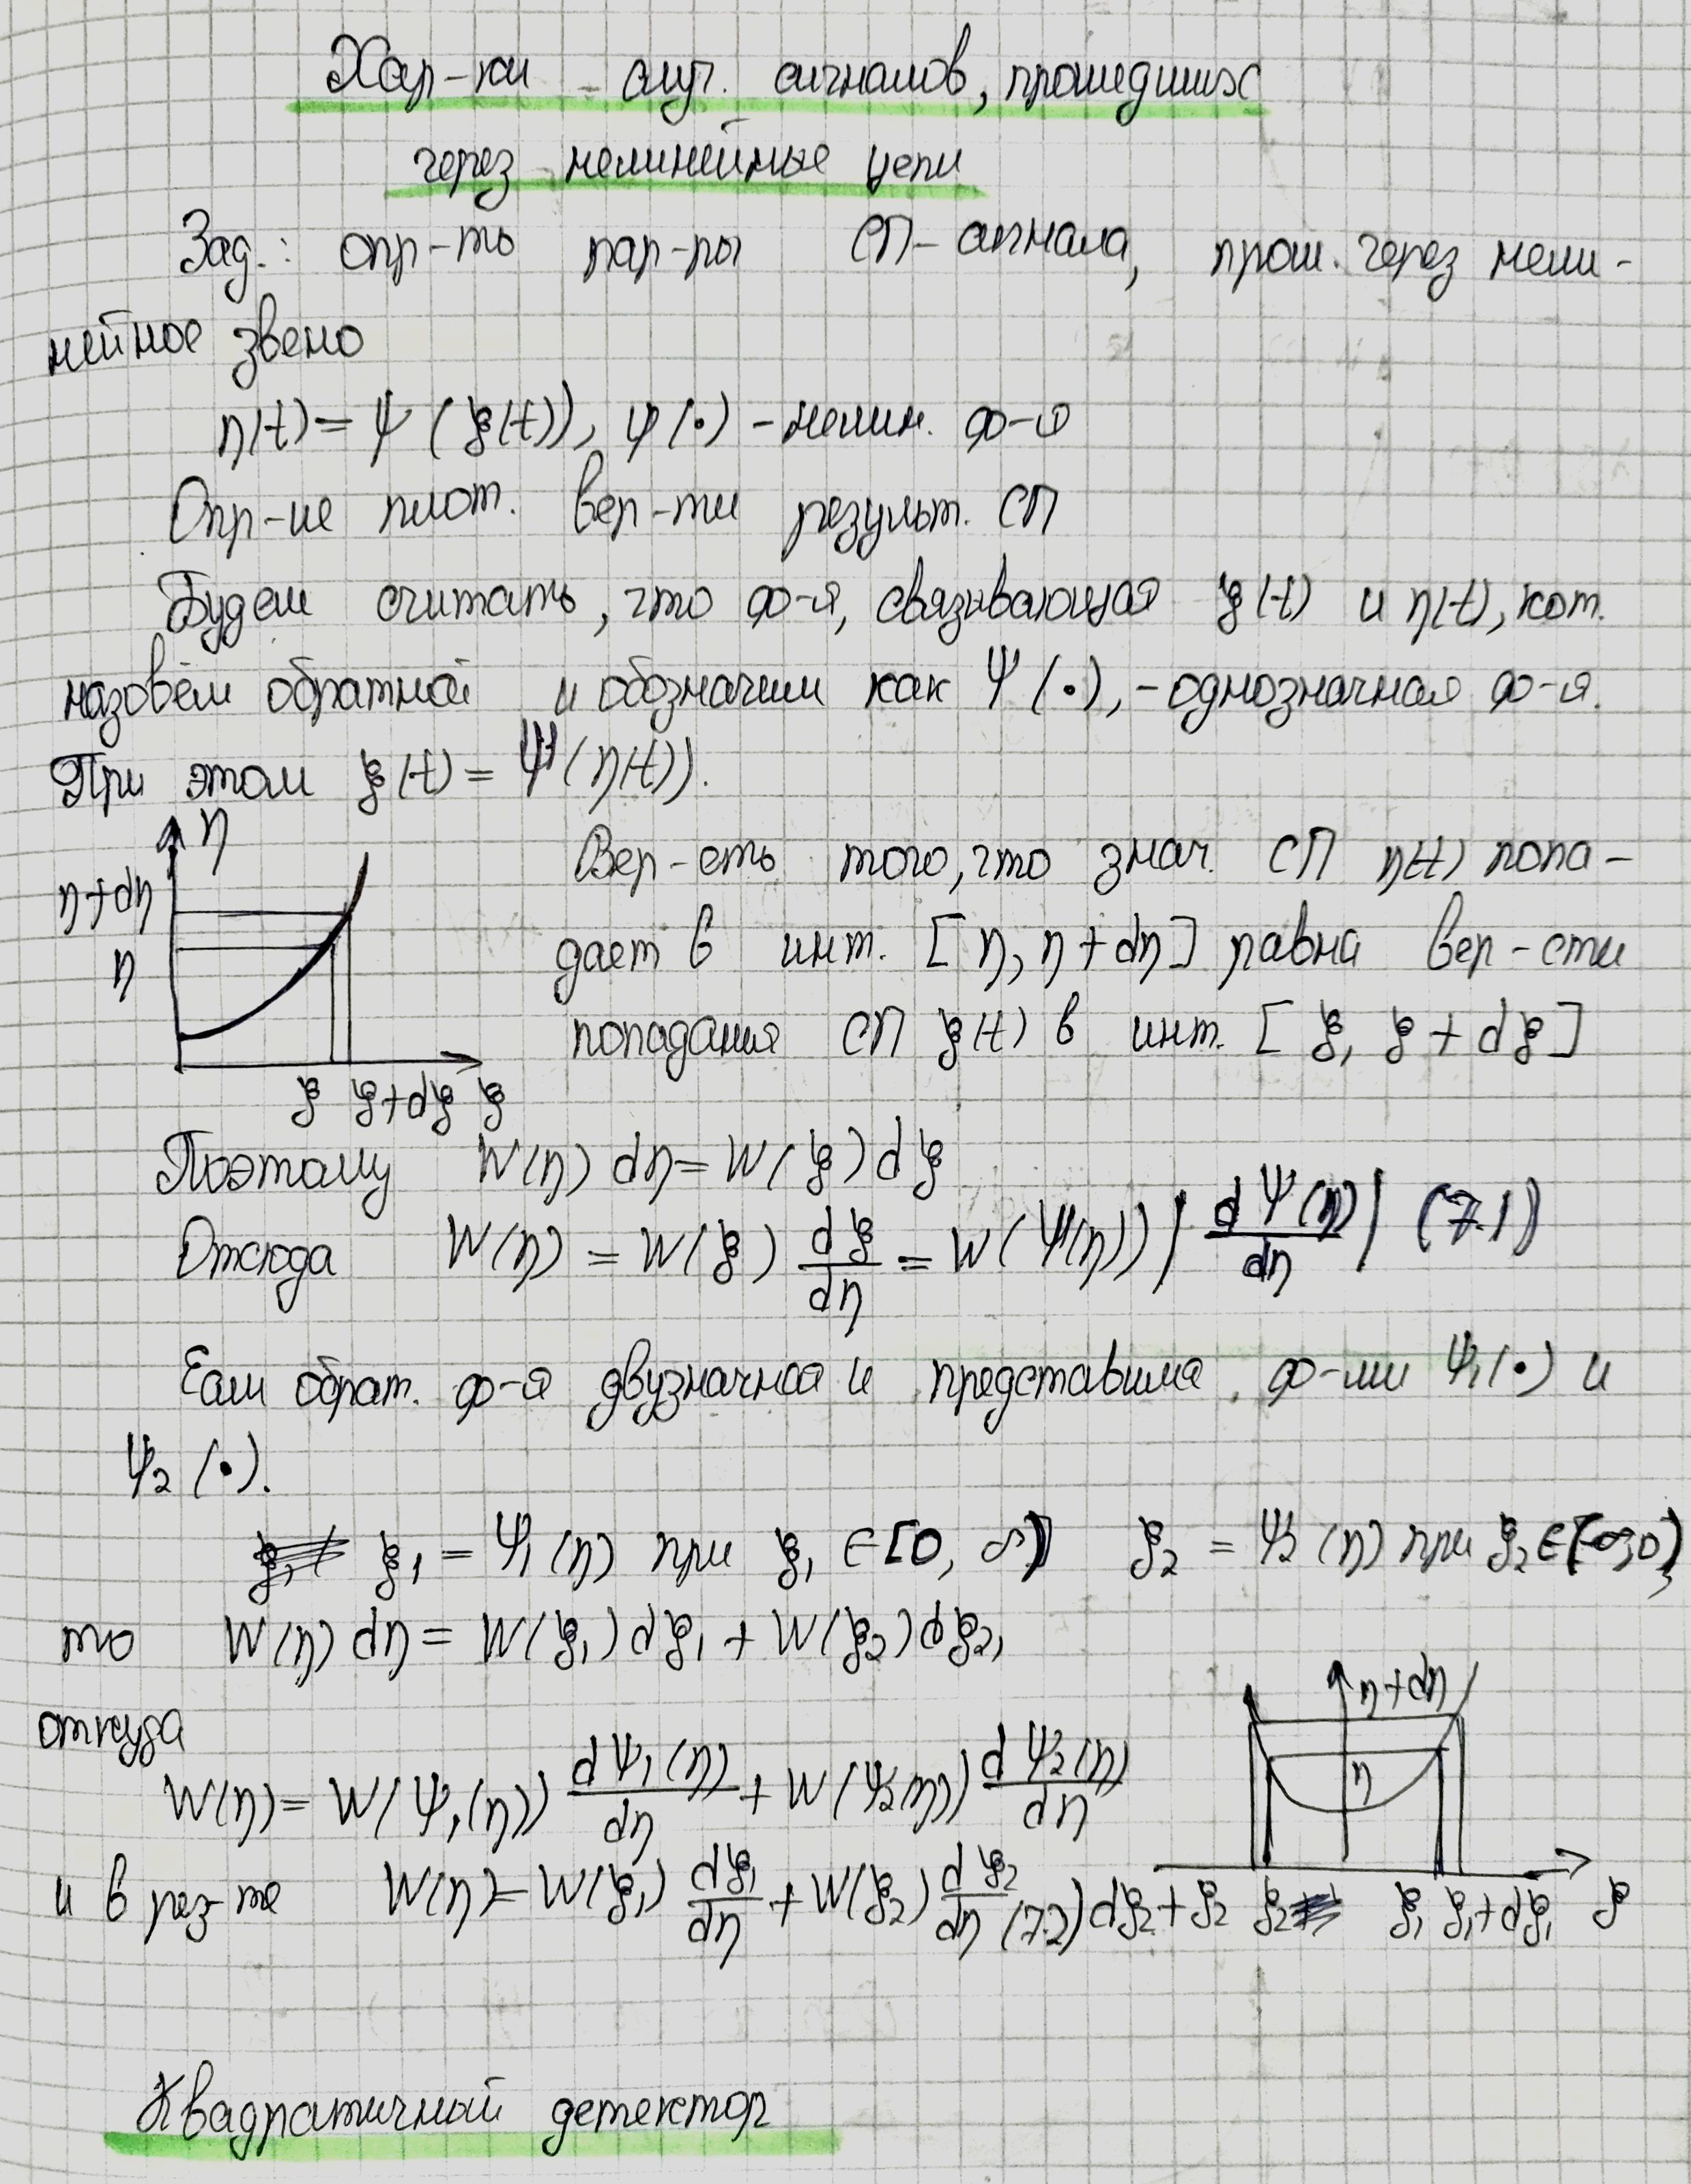 Хар-ки случ. сигналов, прошедших
через нелинейные цепи
Зад.: опр-ть пар-ры СП-сигнала, прош. через нели-
нейное звено
η(t) = ψ(ξ(t)), ψ(•) - нелин. ф-я
Опр-ие плот. вер-ти результ. СП
Будем считать, что ф-я, связывающая ξ(t) и η(t), кот.
назовём обратной и обозначим как Ψ(•), - однозначная ф-я.
При этом ξ(t) = Ψ(η(t)).
η
η+dη
η
ξ ξ+dξ ξ
Вер-сть того, что знач. СП η(t) попа-
дает в инт. [η, η+dη] равна вер-сти
попадания СП ξ(t) в инт. [ξ, ξ+dξ]
Поэтому W(η) dη = W(ξ) dξ
Отсюда W(η) = W(ξ) dξ/dη = W(Ψ(η)) |dΨ(η)/dη| (7.1)
Если обрат. ф-я двузначная и представима ф-ми Ψ₁(•) и
Ψ₂(•).
ξ₁ = Ψ₁(η) при ξ₁ ∈ [0, ∞) ξ₂ = Ψ₂(η) при ξ₂ ∈ (-∞, 0),
то W(η) dη = W(ξ₁) dξ₁ + W(ξ₂) dξ₂,
откуда
W(η) = W(Ψ₁(η)) dΨ₁(η)/dη + W(Ψ₂(η)) dΨ₂(η)/dη
и в рез-те W(η) = W(ξ₁) dξ₁/dη + W(ξ₂) dξ₂/dη (7.2)
η+dη
η
dξ₂+ξ₂ ξ₂ ξ₁ ξ₁+dξ₁ ξ
Квадратичный детектор